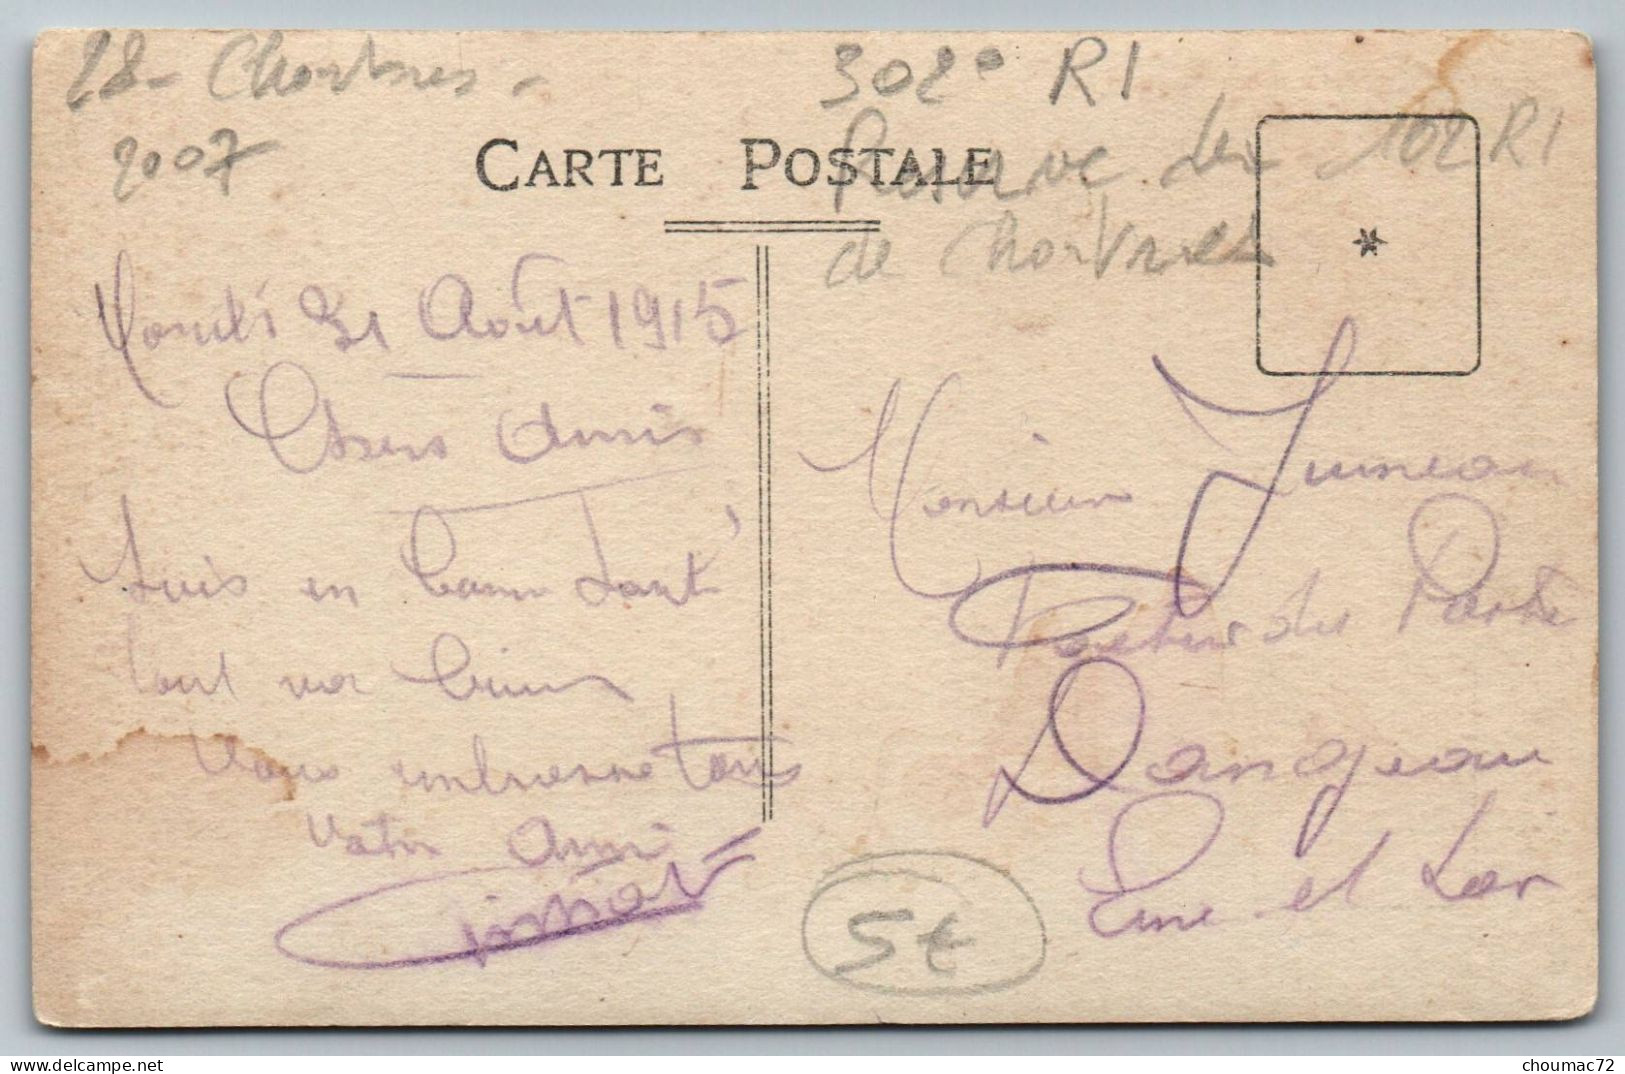 28 - Chartres -
2007
302e RI
Reserve du 102 RI
de Chartres
CARTE POSTALE
31 Août 1915
Chers Amis
Suis en bonne Santé
tout va bien
Vous embrasse tous
Votre Ami
Monsieur Jumeau
Facteur des Postes
Dangeau
Eure et Loir
5€
delcampe.net
choumac72